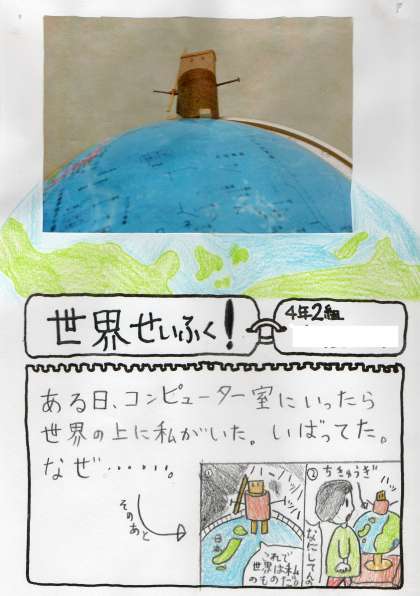 世界せいふく!
4年2組
ある日、コンピューター室にいったら
世界の上に私がいた。いばってた。
なぜ……。
そのあと
①
ハーハッ
ハッハッ
日本
これで
世界は私
のものだ。
②
ちきゅうぎ
なにしてんの